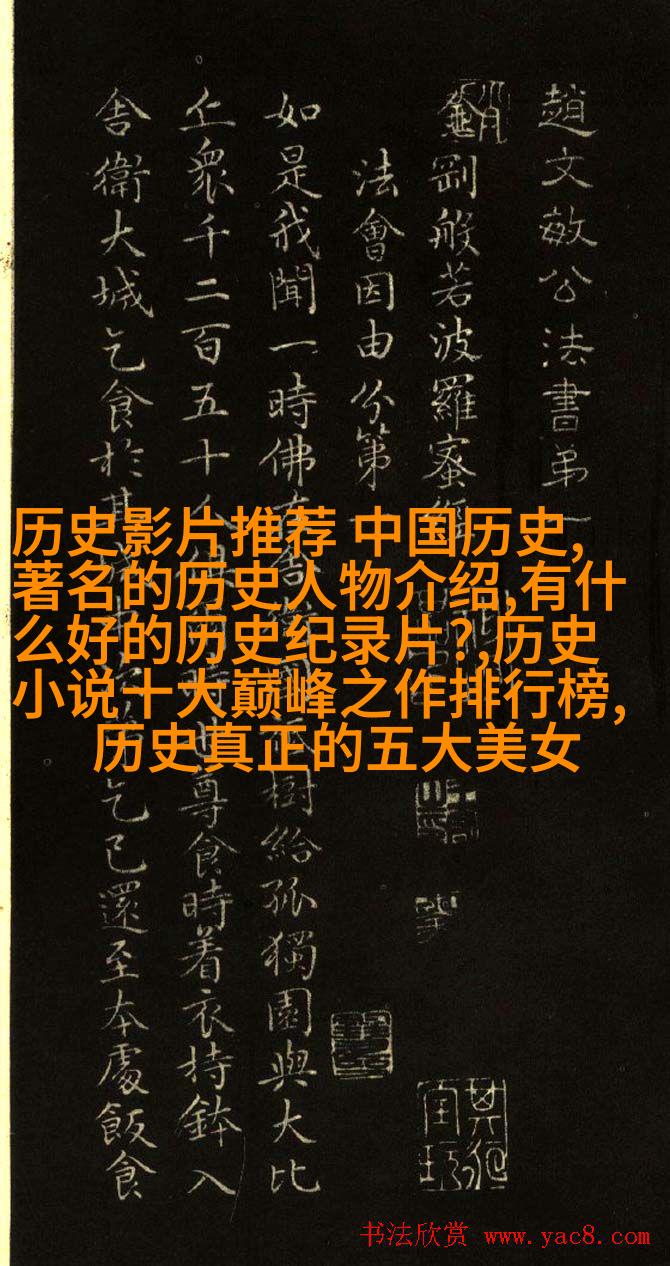 趙文敏公法書弟一
金剛般若波羅蜜經
法會因由分第
如是我聞一時佛在舍衛 樹給孤獨園與大比
丘眾千二百五十人俱 世尊食時着衣持鉢入
舍衛大城乞食於其 乞已還至本處飯食
历史影片推荐 中国历史,
著名的历史人物介绍,有什
么好的历史纪录片?,历史
小说十大巅峰之作排行榜,
历史真正的五大美女
书法欣赏 www.yac8.com